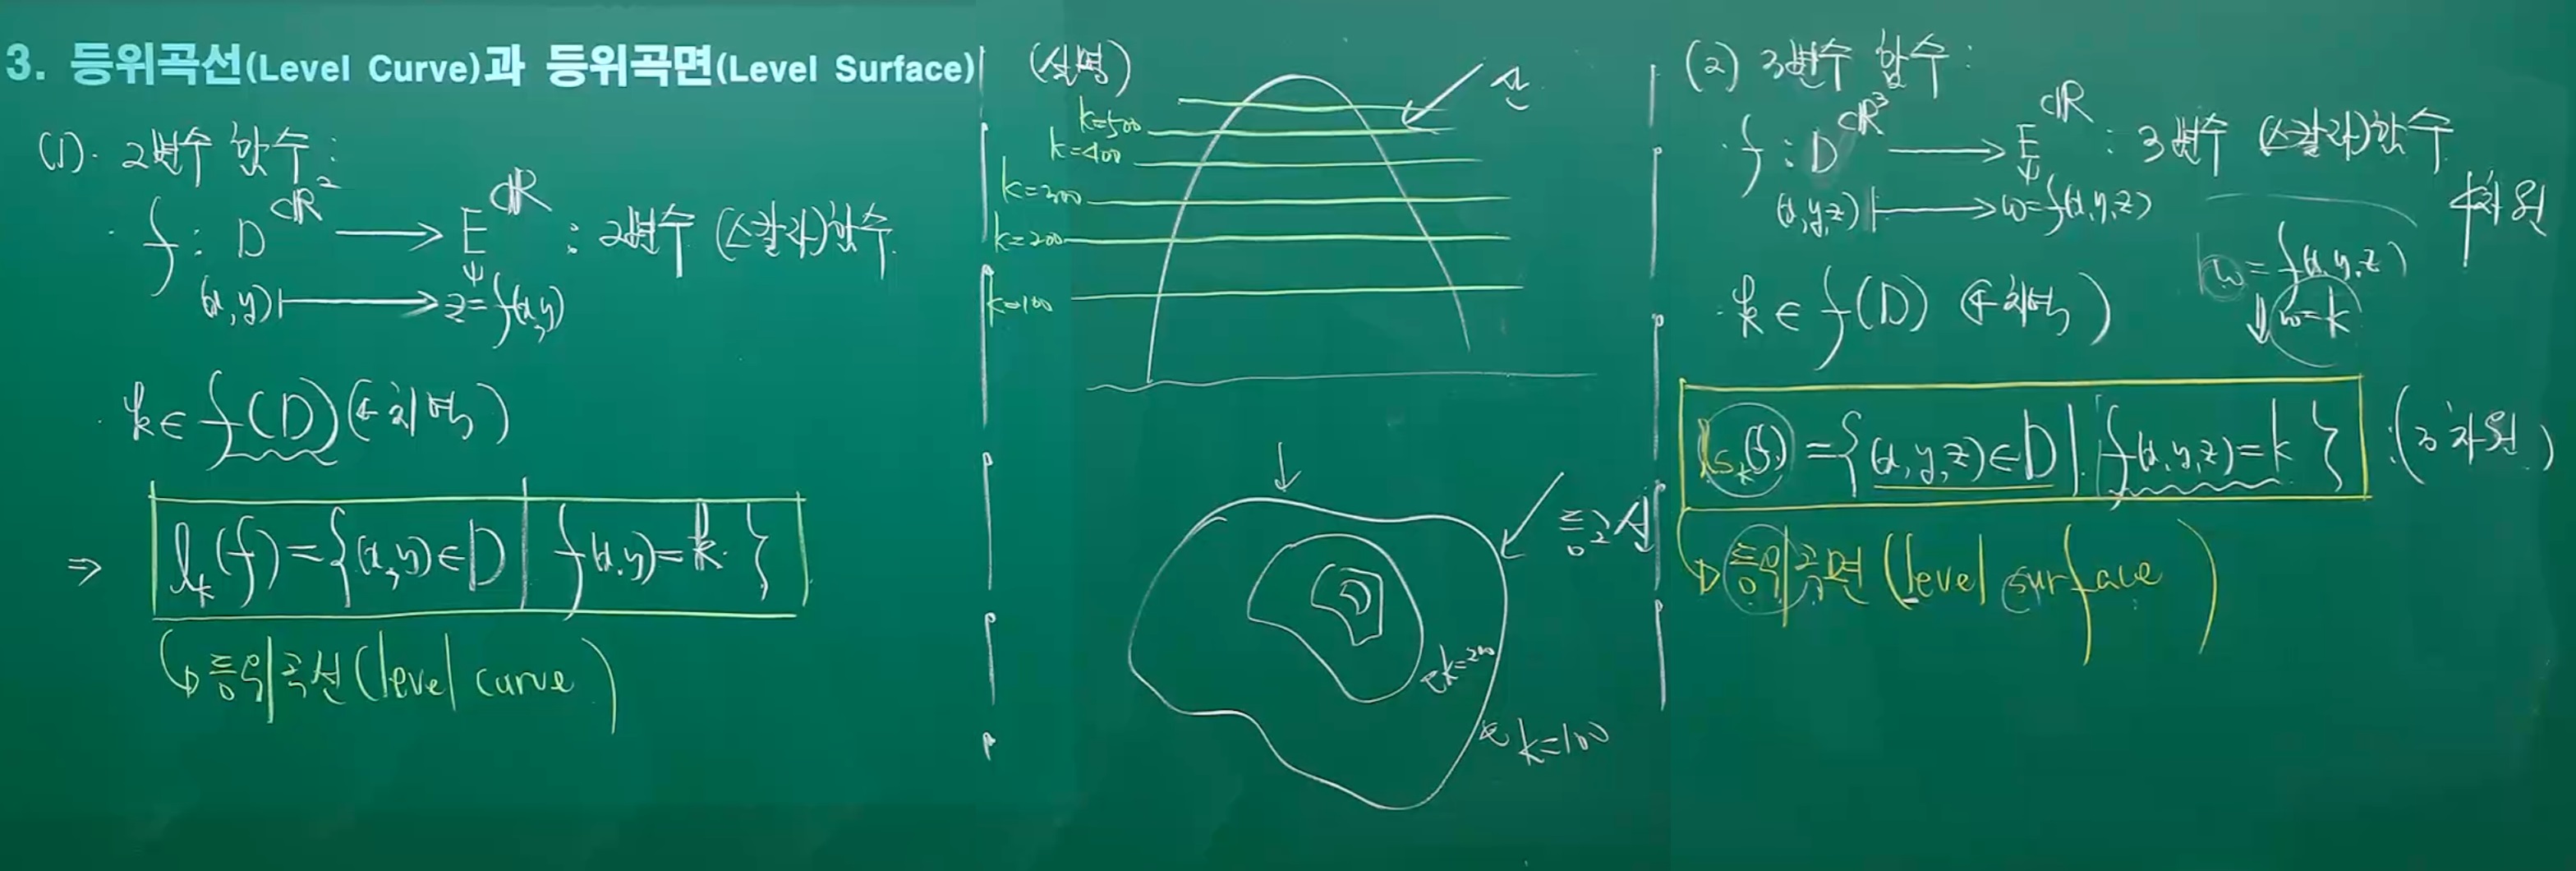 3. 등위곡선(Level Curve)과 등위곡면(Level Surface)
(1). 2변수 함수 :
f : D ⊂ℝ² ⟶ E ⊂ℝ : 2변수 (스칼라)함수.
(x,y) ⟼ z=f(x,y)
k∈f(D) (←치역)
⇒ l_k(f)={(x,y)∈D | f(x,y)=k }
등위곡선 (level curve)
(설명)
산
k=500
k=400
k=300
k=200
k=100
등고선
k=200
k=100
(2) 3변수 함수 :
f : D ⊂ℝ³ ⟶ E ⊂ℝ : 3변수 (스칼라)함수
(x,y,z) ⟼ w=f(x,y,z)
4차원
w=f(x,y,z)
k∈f(D) (←치역)
w=k
ls_k(f)={(x,y,z)∈D | f(x,y,z)=k } : (3차원)
등위곡면 (level surface)